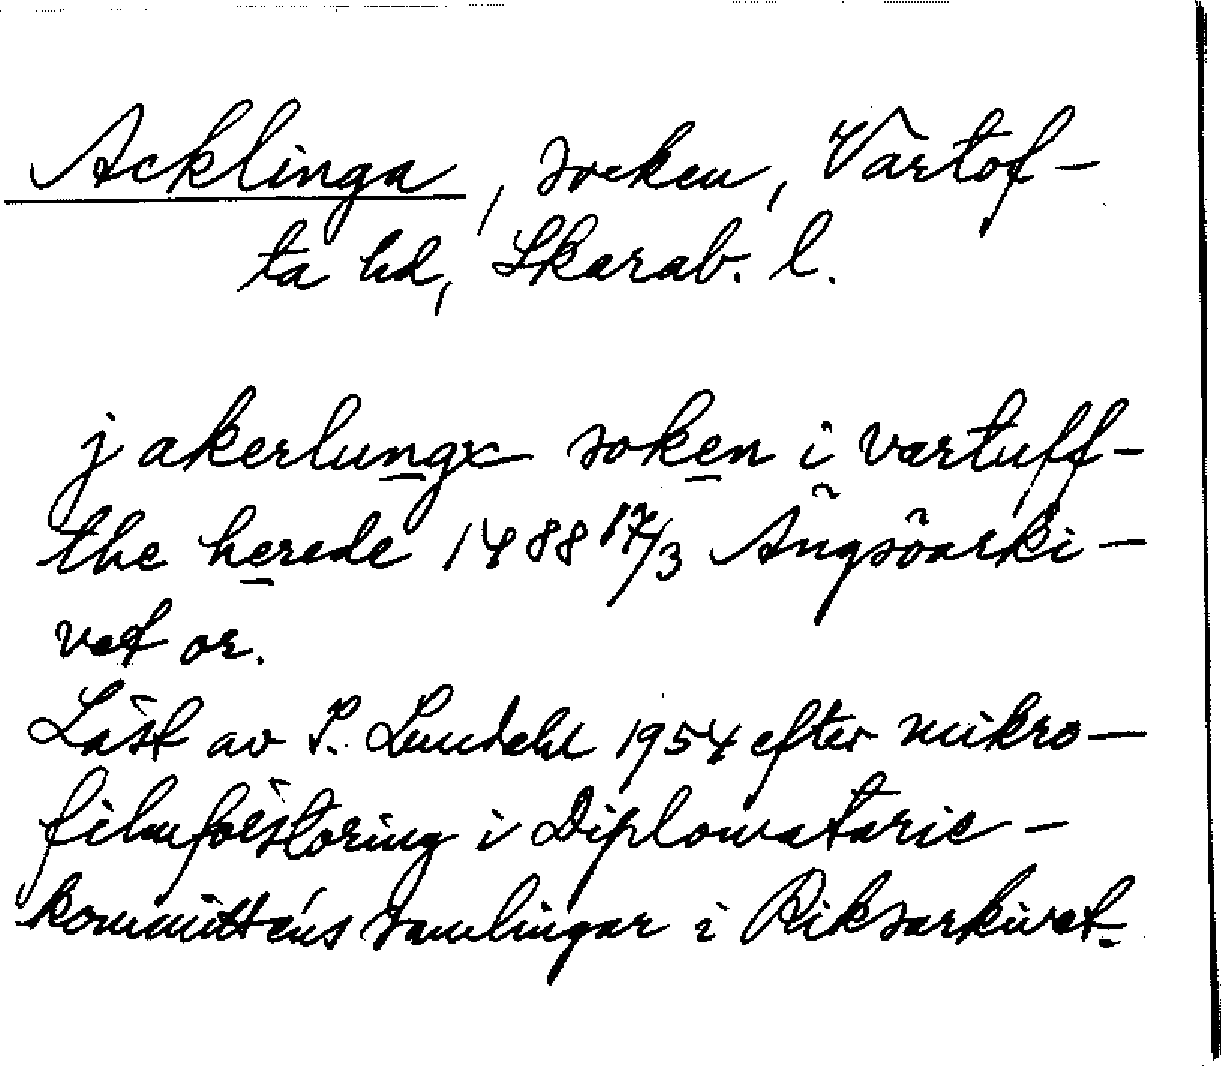 Acklinga, socken, Vartof-
ta hd, Skarab. l.
j akerlungx soken i vartuff-
the herede 1488 17/3 Ängsöarki-
vet or.
Läst av I. Lundahl 1954 efter mikro-
filmförstoring i Diplomatarie-
kommitténs samlingar i Riksarkivet.